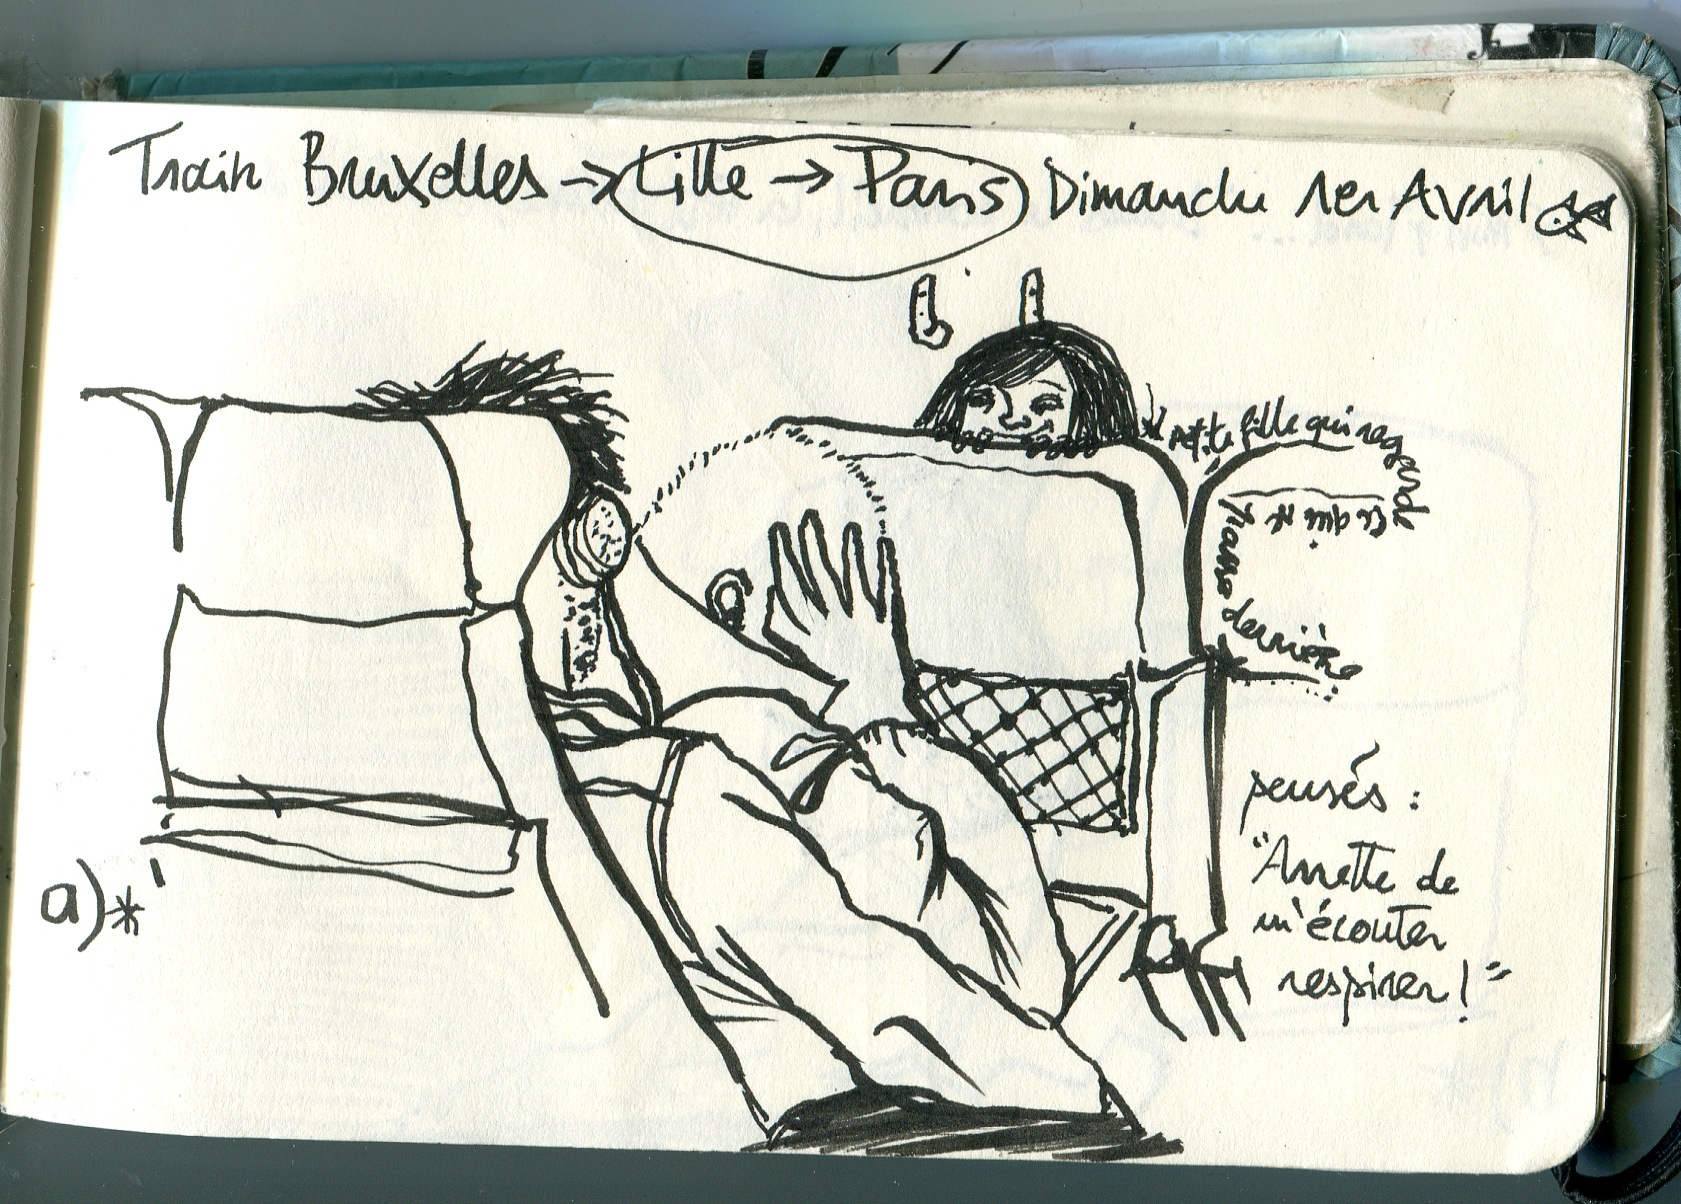 Train Bruxelles → Lille → Paris Dimanche 1er Avril
petite fille qui regarde
ce qui se
passe derrière
a)*
pensés :
"Arrette de
m'écouter
respirer!"